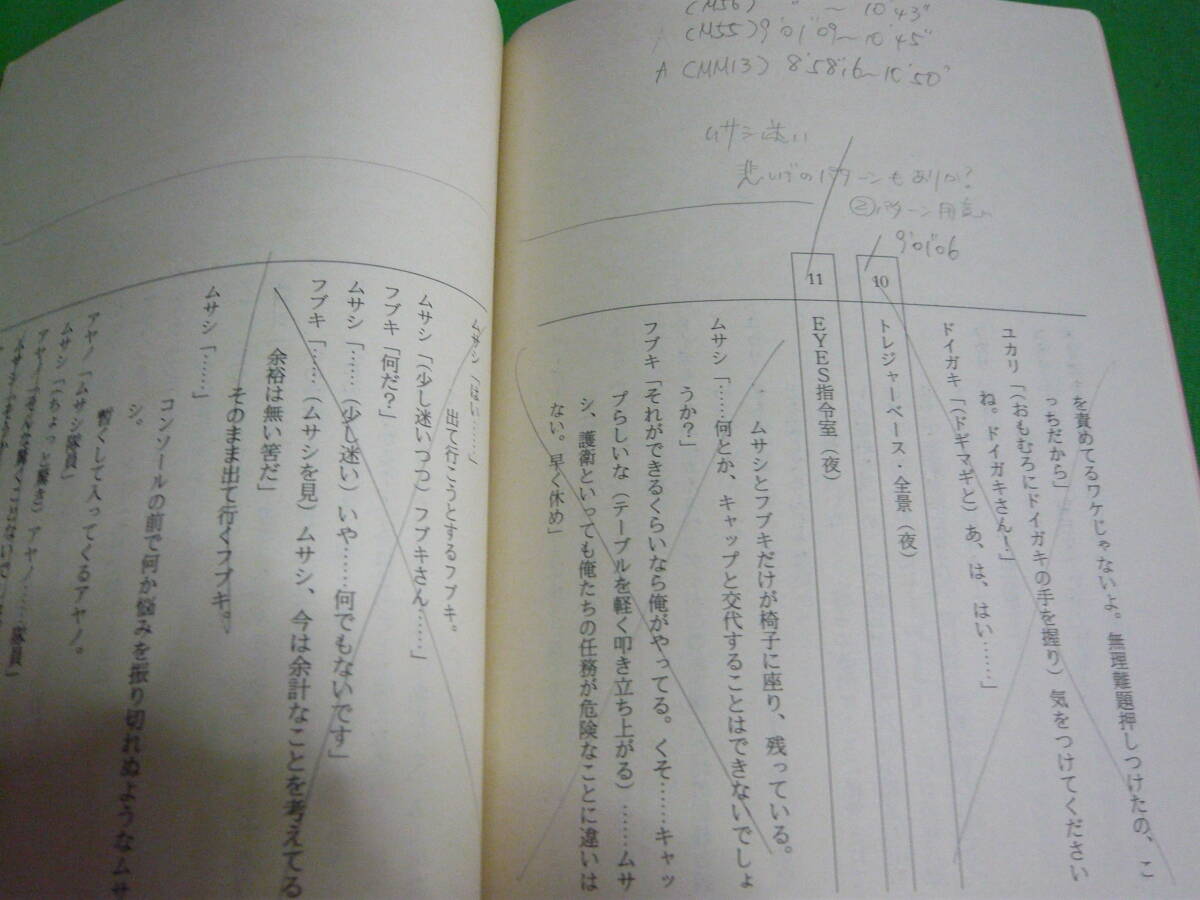 (M56) 〃 ～ 10'43"
(M55) 9'01"09～10'45"
A (MM13) 8'58"16～10'50"
ムサシ迷い
悲しげのパターンもありか?
②パターン用意
9'01"06
を責めてるワケじゃないよ。無理難題押しつけたの、こ
っちだから」
ユカリ「(おもむろにドイガキの手を握り)気をつけてください
ね。ドイガキさん!」
ドイガキ「(ドギマギと)あ、は、はい……」
10
トレジャーベース・全景(夜)
11
EYES指令室(夜)
ムサシとフブキだけが椅子に座り、残っている。
ムサシ「……何とか、キャップと交代することはできないでしょ
うか?」
フブキ「それができるくらいなら俺がやってる。くそ……キャッ
プらしいな(テーブルを軽く叩き立ち上がる)……ムサ
シ、護衛といっても俺たちの任務が危険なことに違いは
ない。早く休め」
ムサシ「はい……」
出て行こうとするフブキ。
ムサシ「(少し迷いつつ)フブキさん……」
フブキ「何だ?」
ムサシ「……(少し迷い)いや……何でもないです」
フブキ「……(ムサシを見)ムサシ、今は余計なことを考えてる
余裕は無い筈だ」
そのまま出て行くフブキ。
ムサシ「……」
コンソールの前で何か悩みを振り切れぬようなムサ
シ。
暫くして入ってくるアヤノ。
アヤノ「ムサシ隊員」
ムサシ「(ちょっと驚き)アヤノ……隊員」
アヤノ「そんな驚くことないで